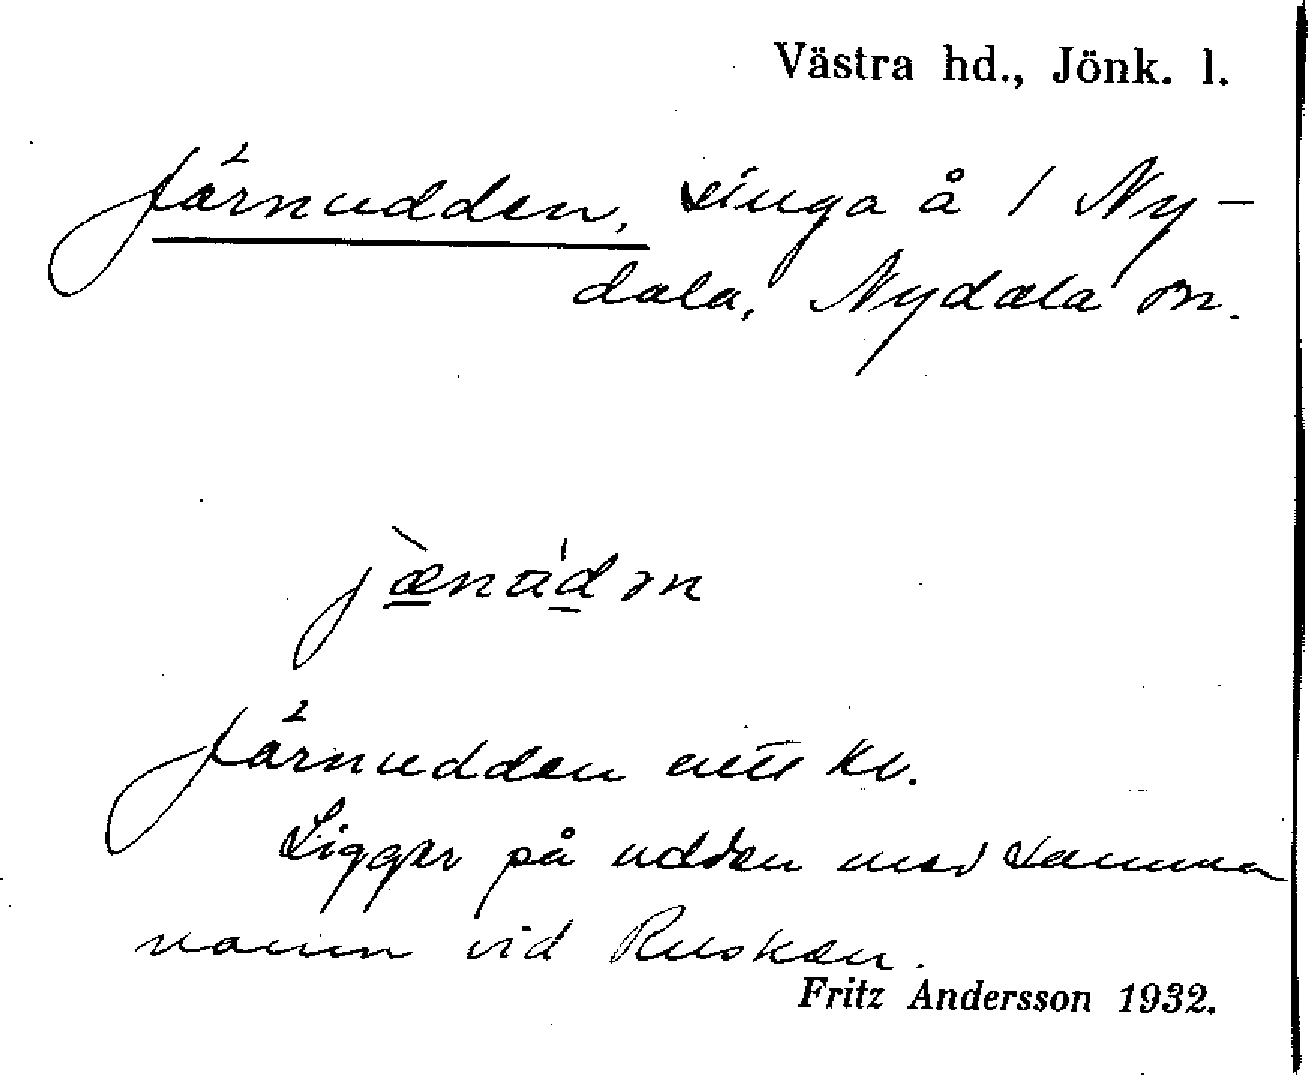 Västra hd., Jönk. l.
Järnudden, äng å 1 Ny-
dala, Nydala sn.
Järnudden enl. kl.
Ligger på udden med samma
namn vid Rusken.
Fritz Andersson 1932.